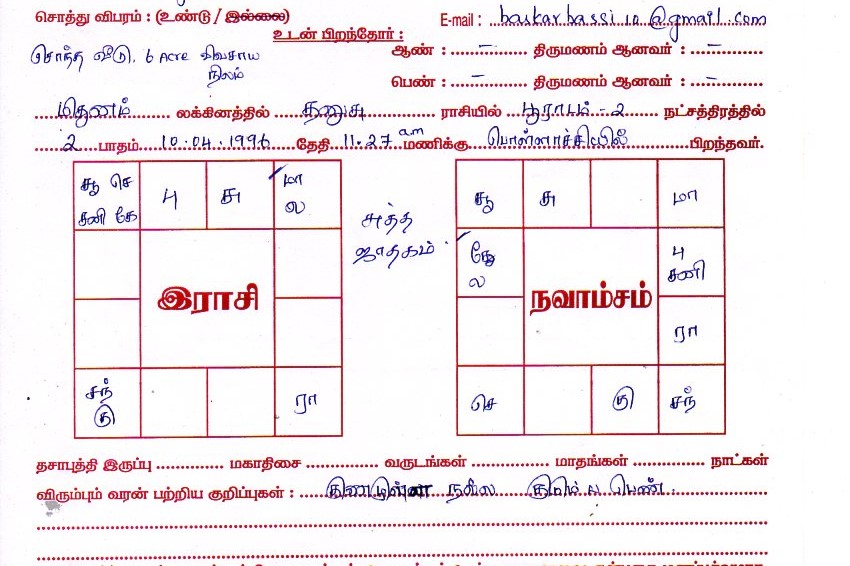 சொத்து விபரம் : (உண்டு / இல்லை)
E-mail : baskarbassi10@gmail.com
உடன் பிறந்தோர் :
சொந்த வீடு, 6 Acre விவசாய நிலம்
ஆண் : – திருமணம் ஆனவர் : –
பெண் : – திருமணம் ஆனவர் : –
மிதுனம் லக்கினத்தில் தனுசு ராசியில் பூராடம் - 2 நட்சத்திரத்தில்
2 பாதம் 10.04.1996 தேதி 11.27 am மணிக்கு பொள்ளாச்சியில் பிறந்தவர்.
சூ செ சனி கே
பு
சு
மா ல
இராசி
சந் கு
ரா
சுத்த ஜாதகம்
சூ
சு
மா
கே ல
பு சனி
நவாம்சம்
ரா
செ
கு
சந்
தசாபுத்தி இருப்பு மகாதிசை வருடங்கள் மாதங்கள் நாட்கள்
விரும்பும் வரன் பற்றிய குறிப்புகள் : குணமுள்ள நல்ல பெண்.